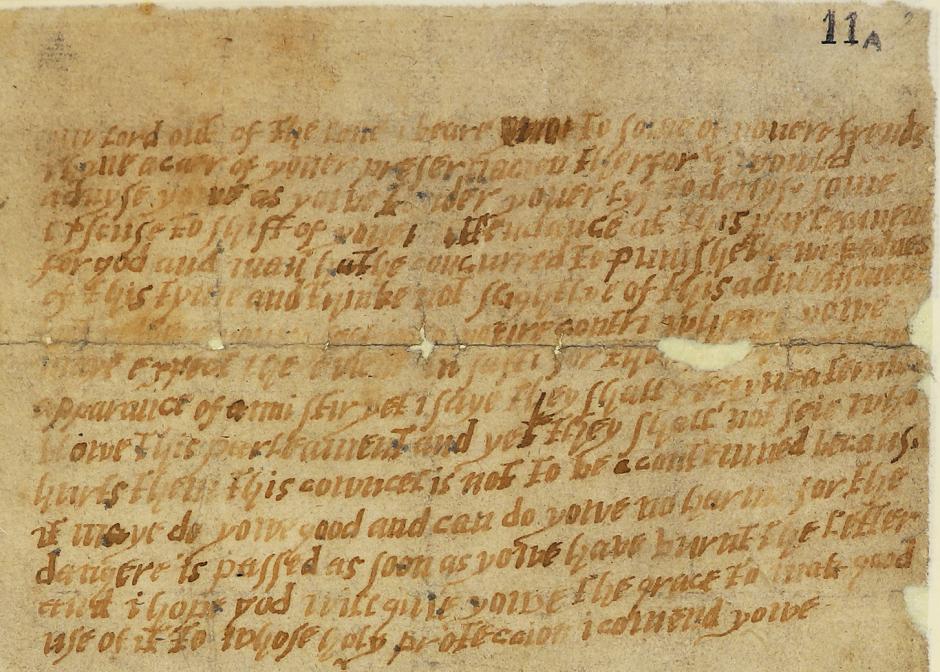 11A
my lord out of the love i beare yowe to some of youere frends
i have a caer of youer preseruacion therfor i would
aduyse yowe as yowe tender youer lyf to deuyse some
exscuse to shift of youer attendance at this parleament
for god and man hathe concurred to punishe the wickednes
of this tyme and thinke not slyghtlye of this aduertisment
youre contri wheare yowe
maye expect the euent in safti for thowghe
apparance of anni stir yet i saye they shall receyue a terribel
blowe this parleament and yet they shall not seie who
hurts them this cowncel is not to be acontemned because
it maye do yowe good and can do yowe no harme for the
dangere is passed as soon as yowe have burnt the letter
and i hope god will giue yowe the grace to mak good
use of it to whose holy proteccion i comend yowe